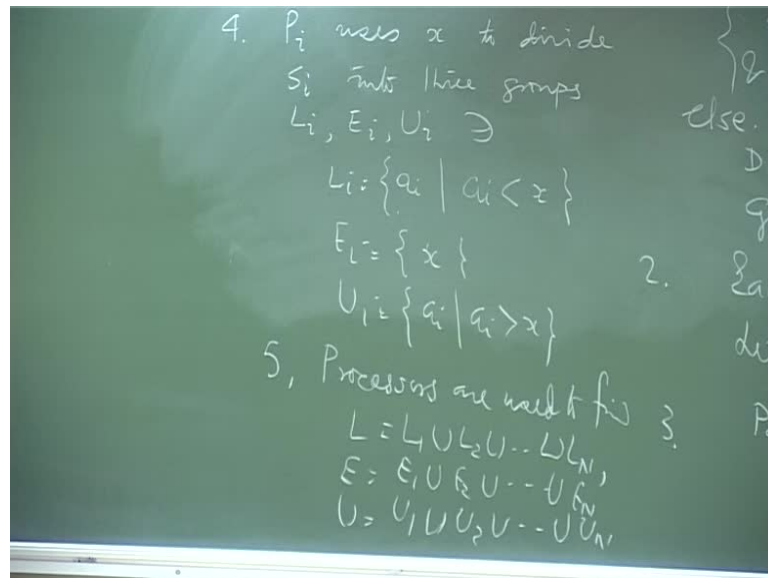 4. Pᵢ uses x to divide
Sᵢ into three groups
Lᵢ, Eᵢ, Uᵢ ∋
Lᵢ = {aᵢ | aᵢ < x}
Eᵢ = {x}
Uᵢ = {aᵢ | aᵢ > x}
5, Processors are used to find
L = L₁ ∪ L₂ ∪ -- ∪ L_N,
E = E₁ ∪ E₂ ∪ --- ∪ E_N
U = U₁ ∪ U₂ ∪ -- ∪ U_N,
{
else.
D
2. {a
3. P